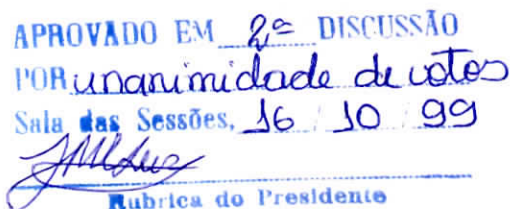 APROVADO EM 2ª DISCUSSÃO
POR unanimidade de votos
Sala das Sessões, 16 10 99
Rubrica do Presidente